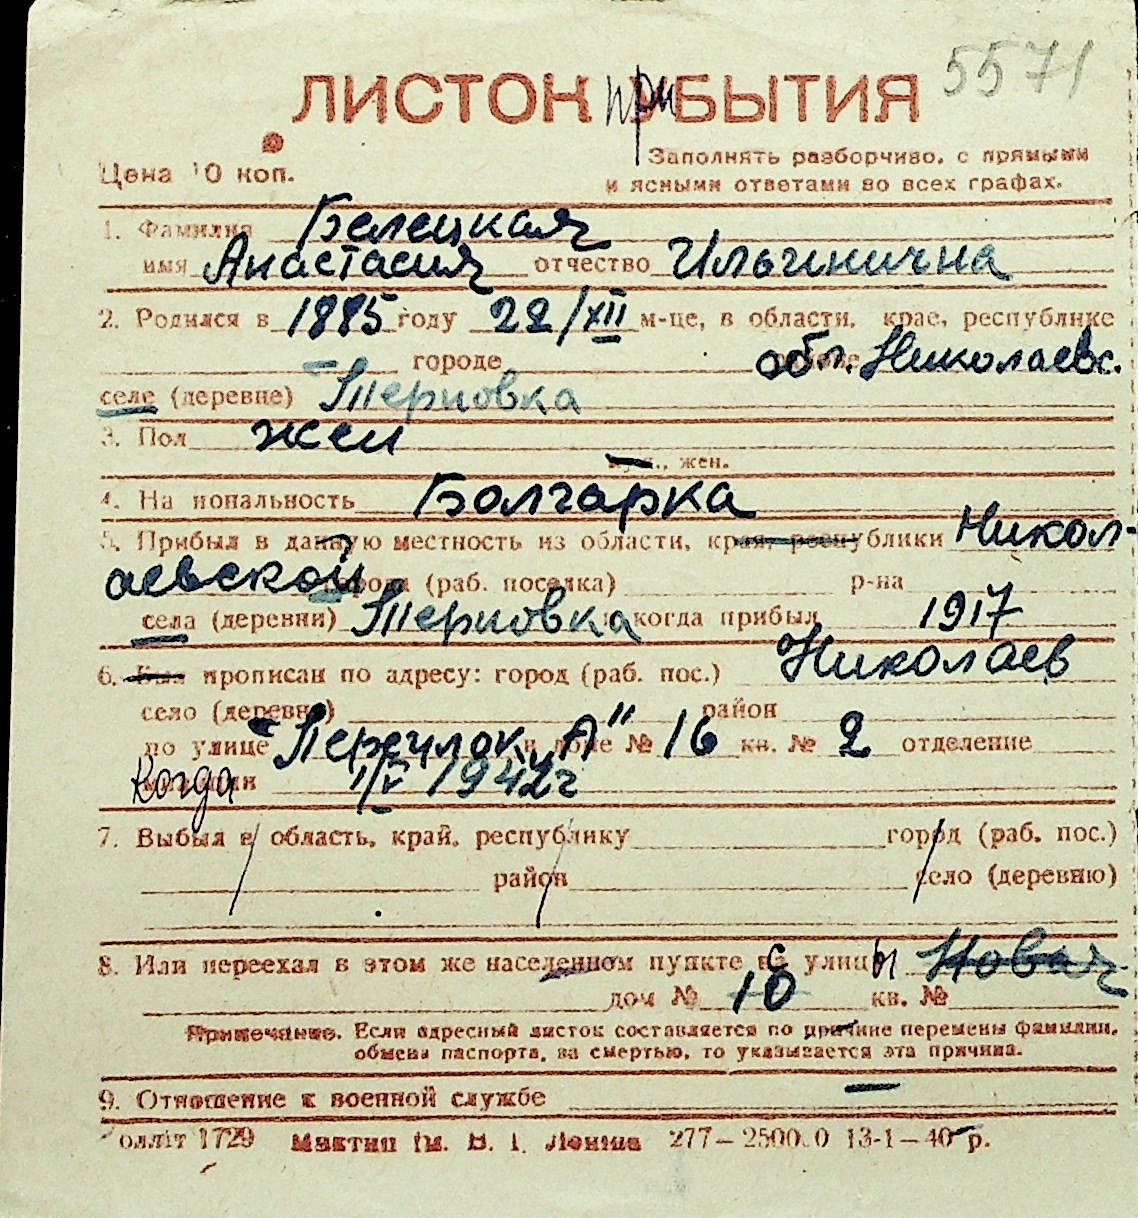 5571
ЛИСТОК при БЫТИЯ
Цена 10 коп.
Заполнять разборчиво, с прямыми
и ясными ответами во всех графах.
1. Фамилия Белецкая
имя Анастасия отчество Ильинична
2. Родился в 1885 году 22/XII м-це, в области, крае, республике
городе обл. Николаевс.
селе (деревне) Терновка
3. Пол жен
муж., жен.
4. На иональность Болгарка
5. Прибыл в данную местность из области, края, республики Никол-
аевской города (раб. поселка) р-на
села (деревни) Терновка и когда прибыл 1917
6. Был прописан по адресу: город (раб. пос.) Николаев
село (деревне) район
по улице "Переулок А" в доме № 16 кв. № 2 отделение
Когда милиции 1/V 1942г
7. Выбыл в область, край, республику город (раб. пос.)
район село (деревню)
8. Или переехал в этом же населенном пункте с улицы Новая
дом № 10 кв. №
Примечание. Если адресный листок составляется по причине перемены фамилии,
обмена паспорта, за смертью, то указывается эта причина.
9. Отношение к военной службе —
оллїт 1729 Миктип їм. В. І. Леніна 277—2500.0 13-1—40 р.